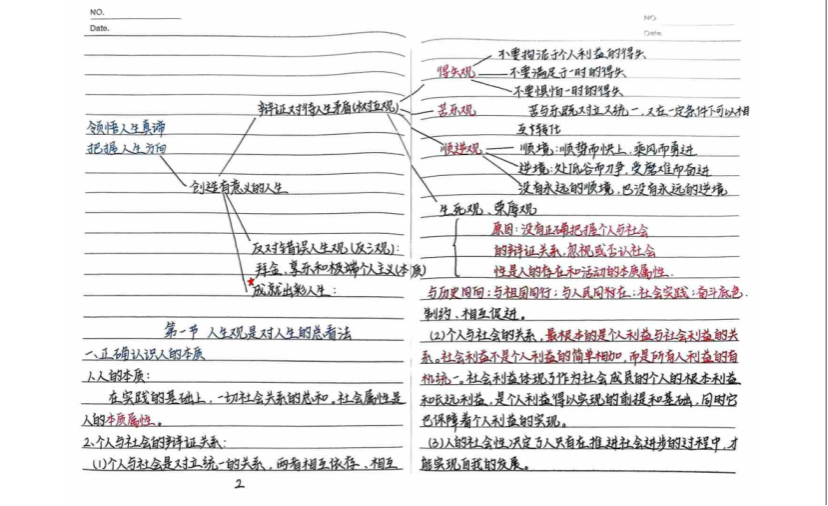 NO.
Date.
领悟人生真谛
把握人生方向
创造有意义的人生
辩证对待人生矛盾(树立观)
反对错误人生观(反三观):
拜金、享乐和极端个人主义(本质)
★成就出彩人生:
第一节 人生观是对人生的总看法
一、正确认识人的本质
1.人的本质:
在实践的基础上,一切社会关系的总和。社会属性是
人的本质属性。
2.个人与社会的辩证关系:
(1)个人与社会是对立统一的关系,两者相互依存、相互
2
NO.
Date.
得失观
不要拘泥于个人利益的得失
不要满足于一时的得失
不要惧怕一时的得失
苦乐观
苦与乐既对立又统一,又在一定条件下可以相
互转化
顺逆观
顺境:顺势而快上,乘风而勇进
逆境:处低谷而力争,受磨难而奋进
没有永远的顺境,也没有永远的逆境
生死观、荣辱观
原因:没有正确把握个人与社会
的辩证关系,忽视或否认社会
性是人的存在和活动的本质属性.
与历史同向;与祖国同行;与人民同在;社会实践;奋斗底色.
制约、相互促进。
(2)个人与社会的关系,最根本的是个人利益与社会利益的关
系。社会利益不是个人利益的简单相加,而是所有人利益的有
机统一。社会利益体现了作为社会成员的个人的根本利益
和长远利益,是个人利益得以实现的前提和基础,同时它
也保障着个人利益的实现。
(3)人的社会性决定了人只有在推进社会进步的过程中,才
能实现自我的发展。